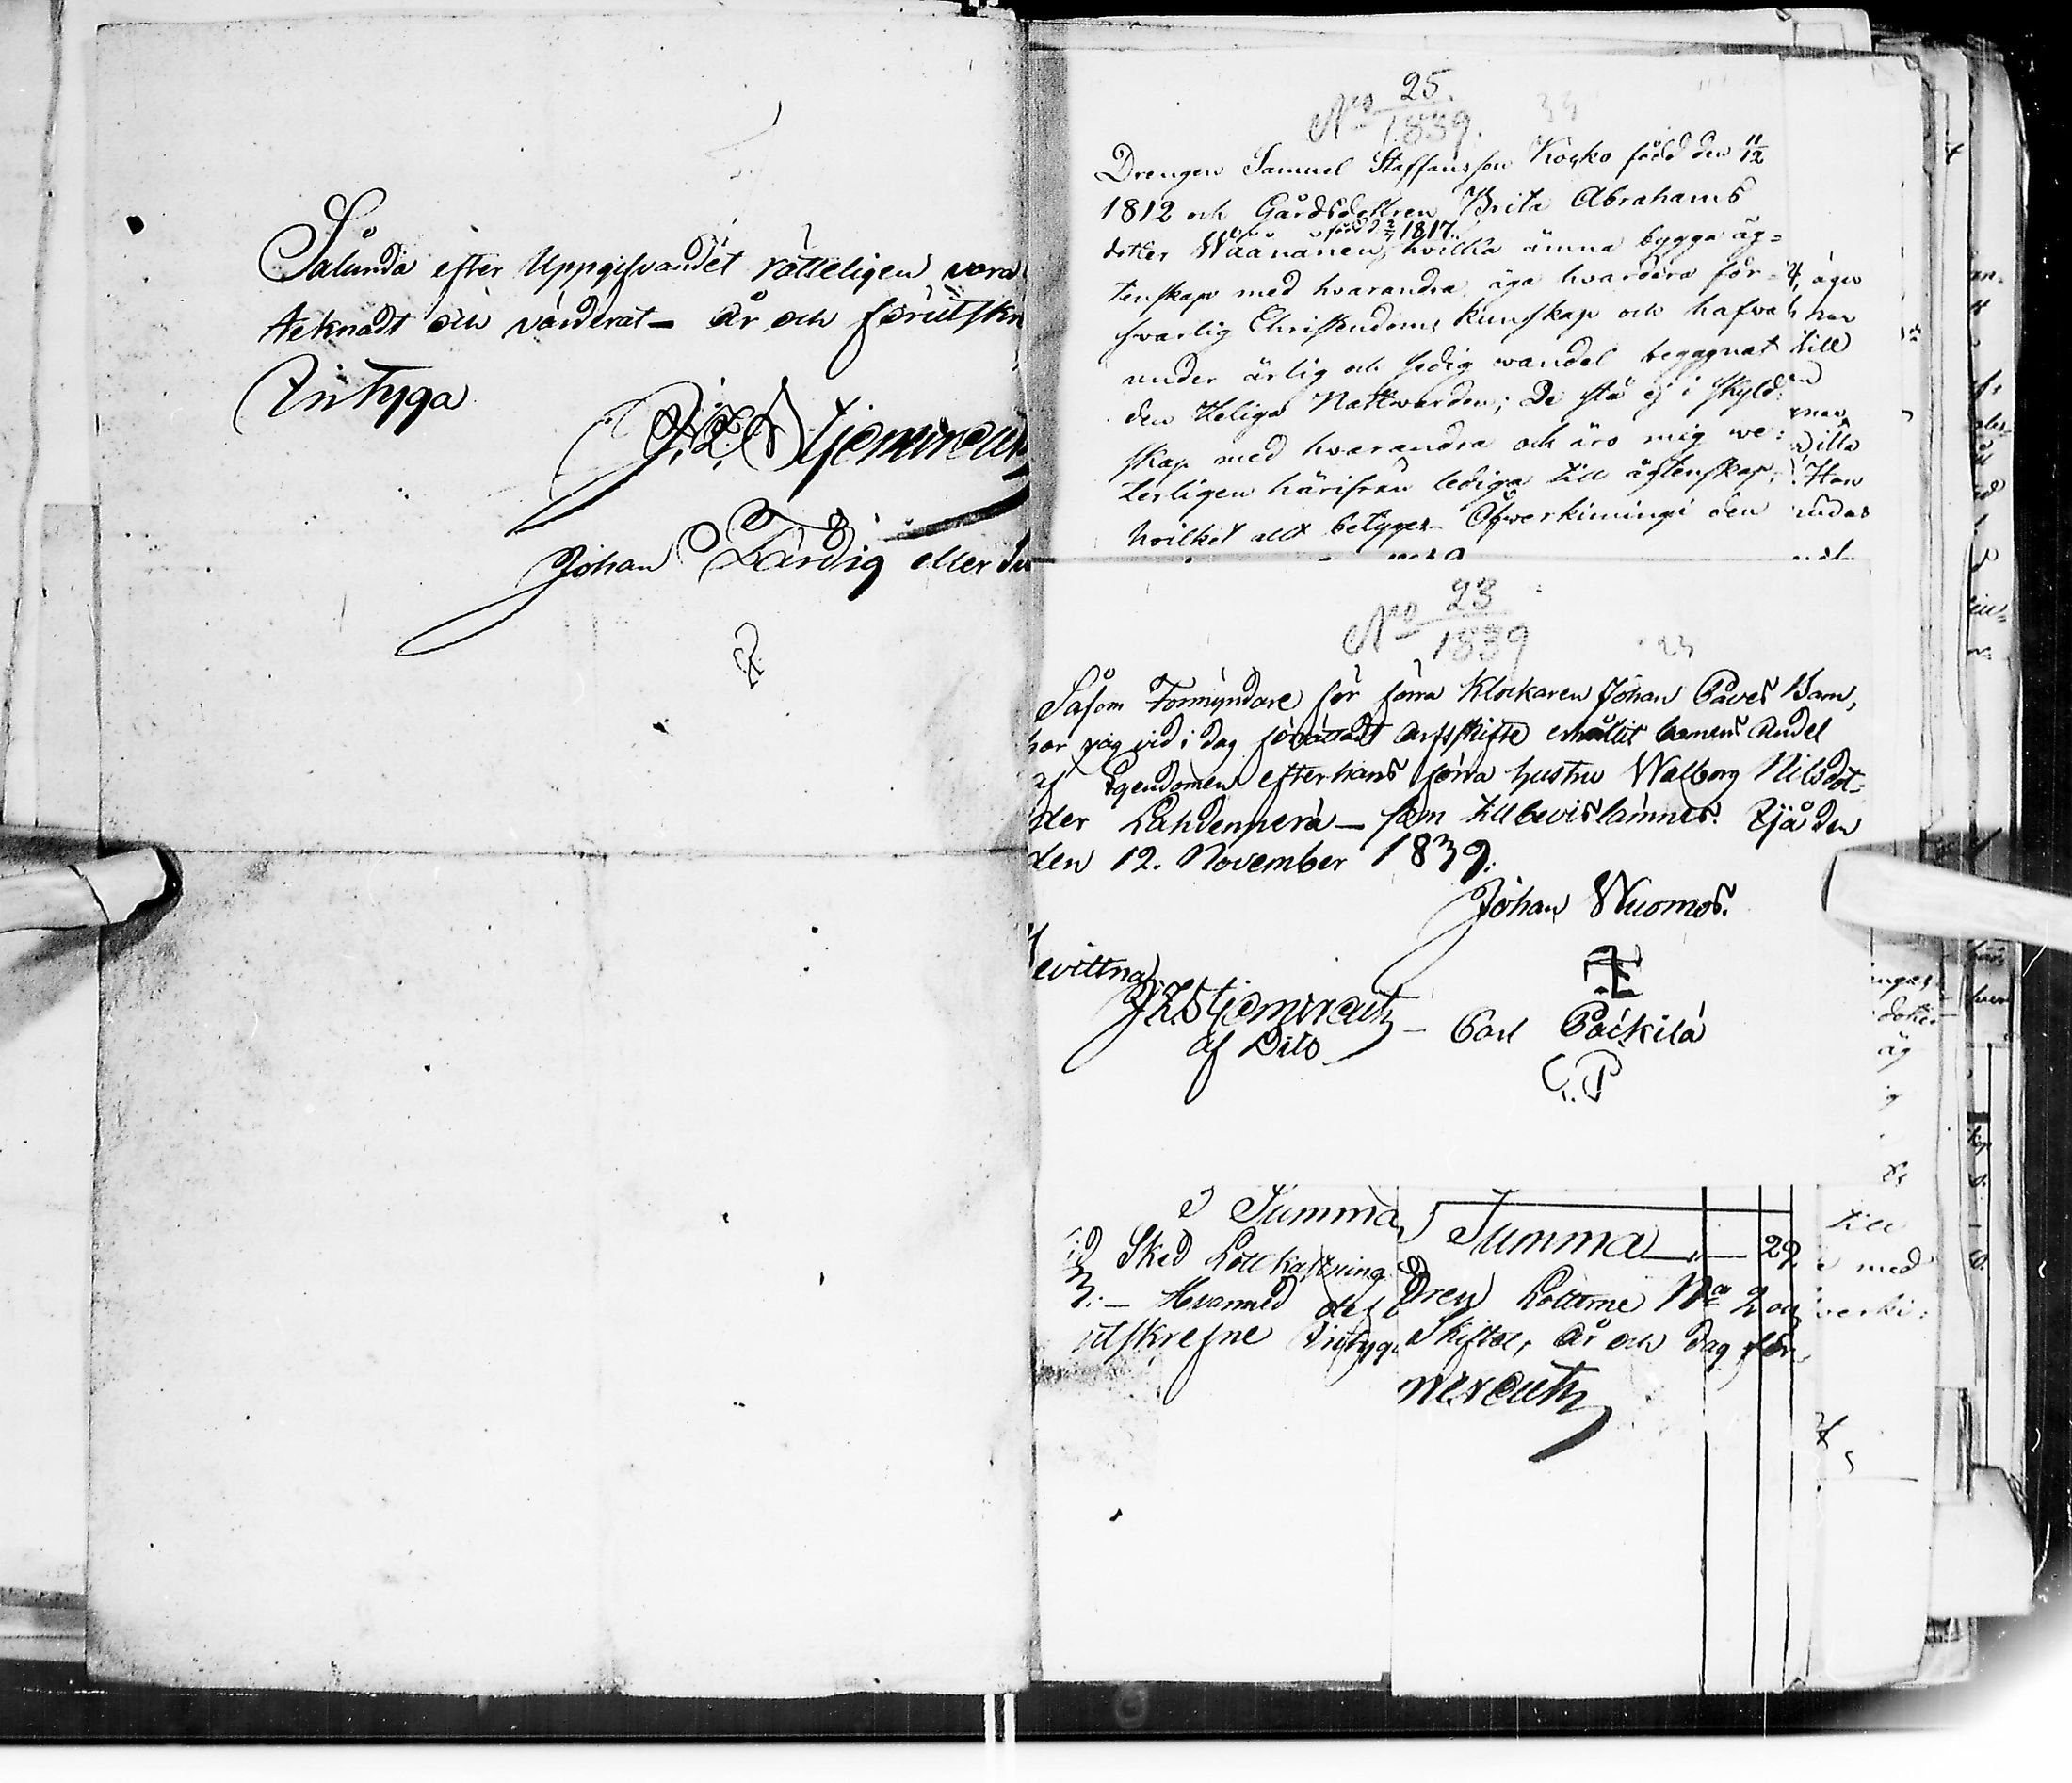 Sålunda efter Uppgifvandet rätteligen vara
teknadt och värderat - År och förutskr
Intyga
Johan Färdig eller
No 25
1839.
Drengen Samuel Staffansson Kosko född den 11/12
1812 och Gårdsdottren Brita Abrahams
född 1817.
dotter Wäänänen, hvilka ämna bygga äg-
tenskap med hvarandra, äga hvardera för-
svarlig Christendoms kunskap och hafva
under ärlig och sedig wandel begagnat
den Heliga Nattwarden; De stå ej i skyld-
skap med hvarandra och äro mig we-
terligen härifrån lediga till ägtenskap;
hvilket allt betygas. Öfwerkiminge den
No 23
1839
23
Såsom Förmyndare för förra Klockaren Johan Påves Barn,
har jag vid i dag förrättadt arfskifte erhållit barnens andel
af Egendomen efter hans förra hustru Walborg Nilsdot-
ter Lahdenperä - som till bevis lämnes. Ijå den
den 12. November 1839.
Johan Wuomos.
evittna
J Z Stjerncreutz - Carl Päckilä
af Dito
Summa
Summa 29
Sked Lottkastning
dren Lotterne No 2 och
3. - Hvarmed
utskrefne Intyga
Skiftet, År och dag för
ncreutz
till
med